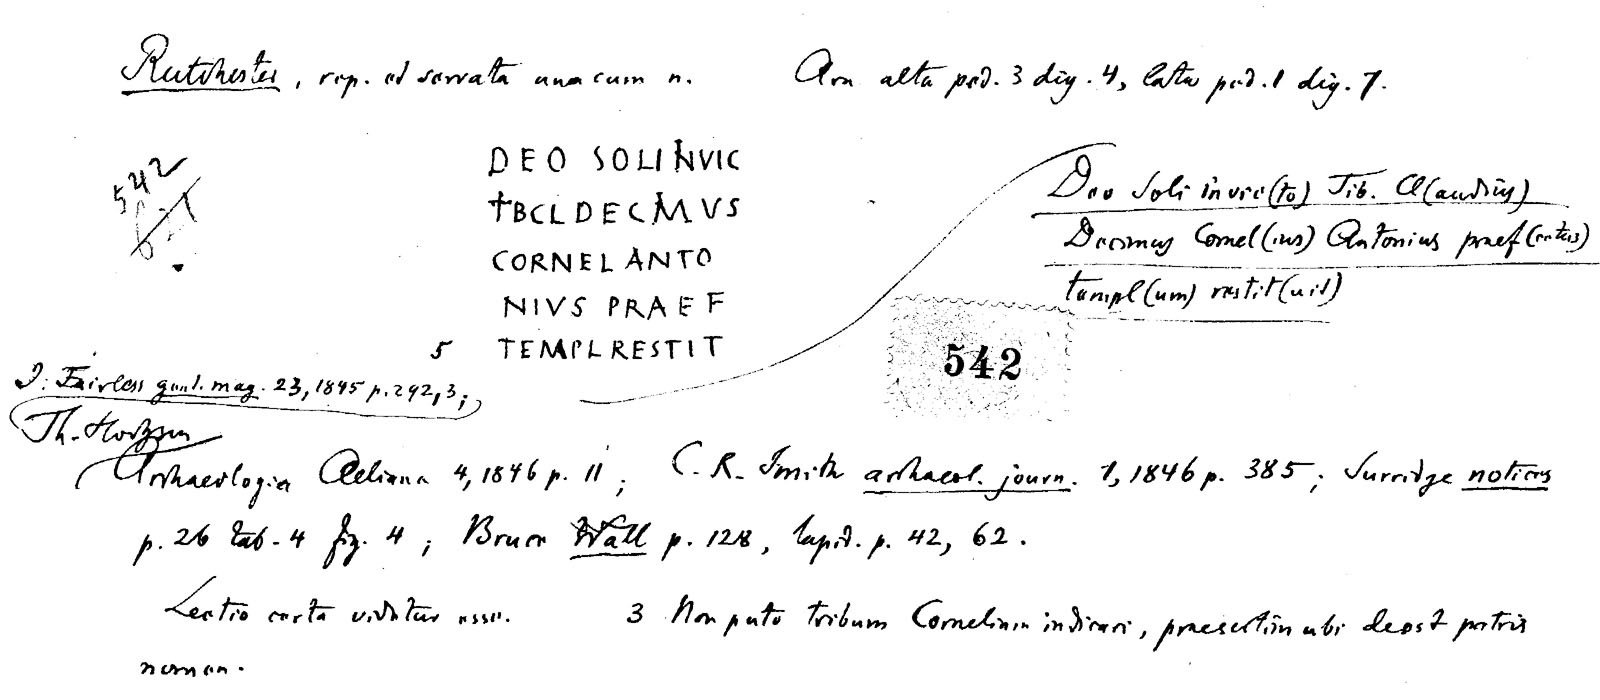 Rutchester, rep. et servata una cum n. Ara alta ped. 3 dig. 4, lata ped. 1 dig. 7.
542
DEO SOLI INVIC
TIB CL DECIMVS
CORNEL ANTO
NIVS PRAEF
5 TEMPL RESTIT
Deo Soli invic(to) Tib. Cl(audius)
Decimus Cornel(ius) Antonius praef(ectus)
templ(um) restit(uit)
542
J. Fairless gent. mag. 23, 1845 p. 292, 3;
Th. Hodgson
Archaeologia Aeliana 4, 1846 p. 11; C. R. Smith archaeol. journ. 1, 1846 p. 385; Surridge notices
p. 26 tab. 4 fig. 4; Bruce Wall p. 128, lapid. p. 42, 62.
Lectio certa videtur esse. 3 Non puto tribum Corneliam indicari, praesertim ubi deest patris
nomen.